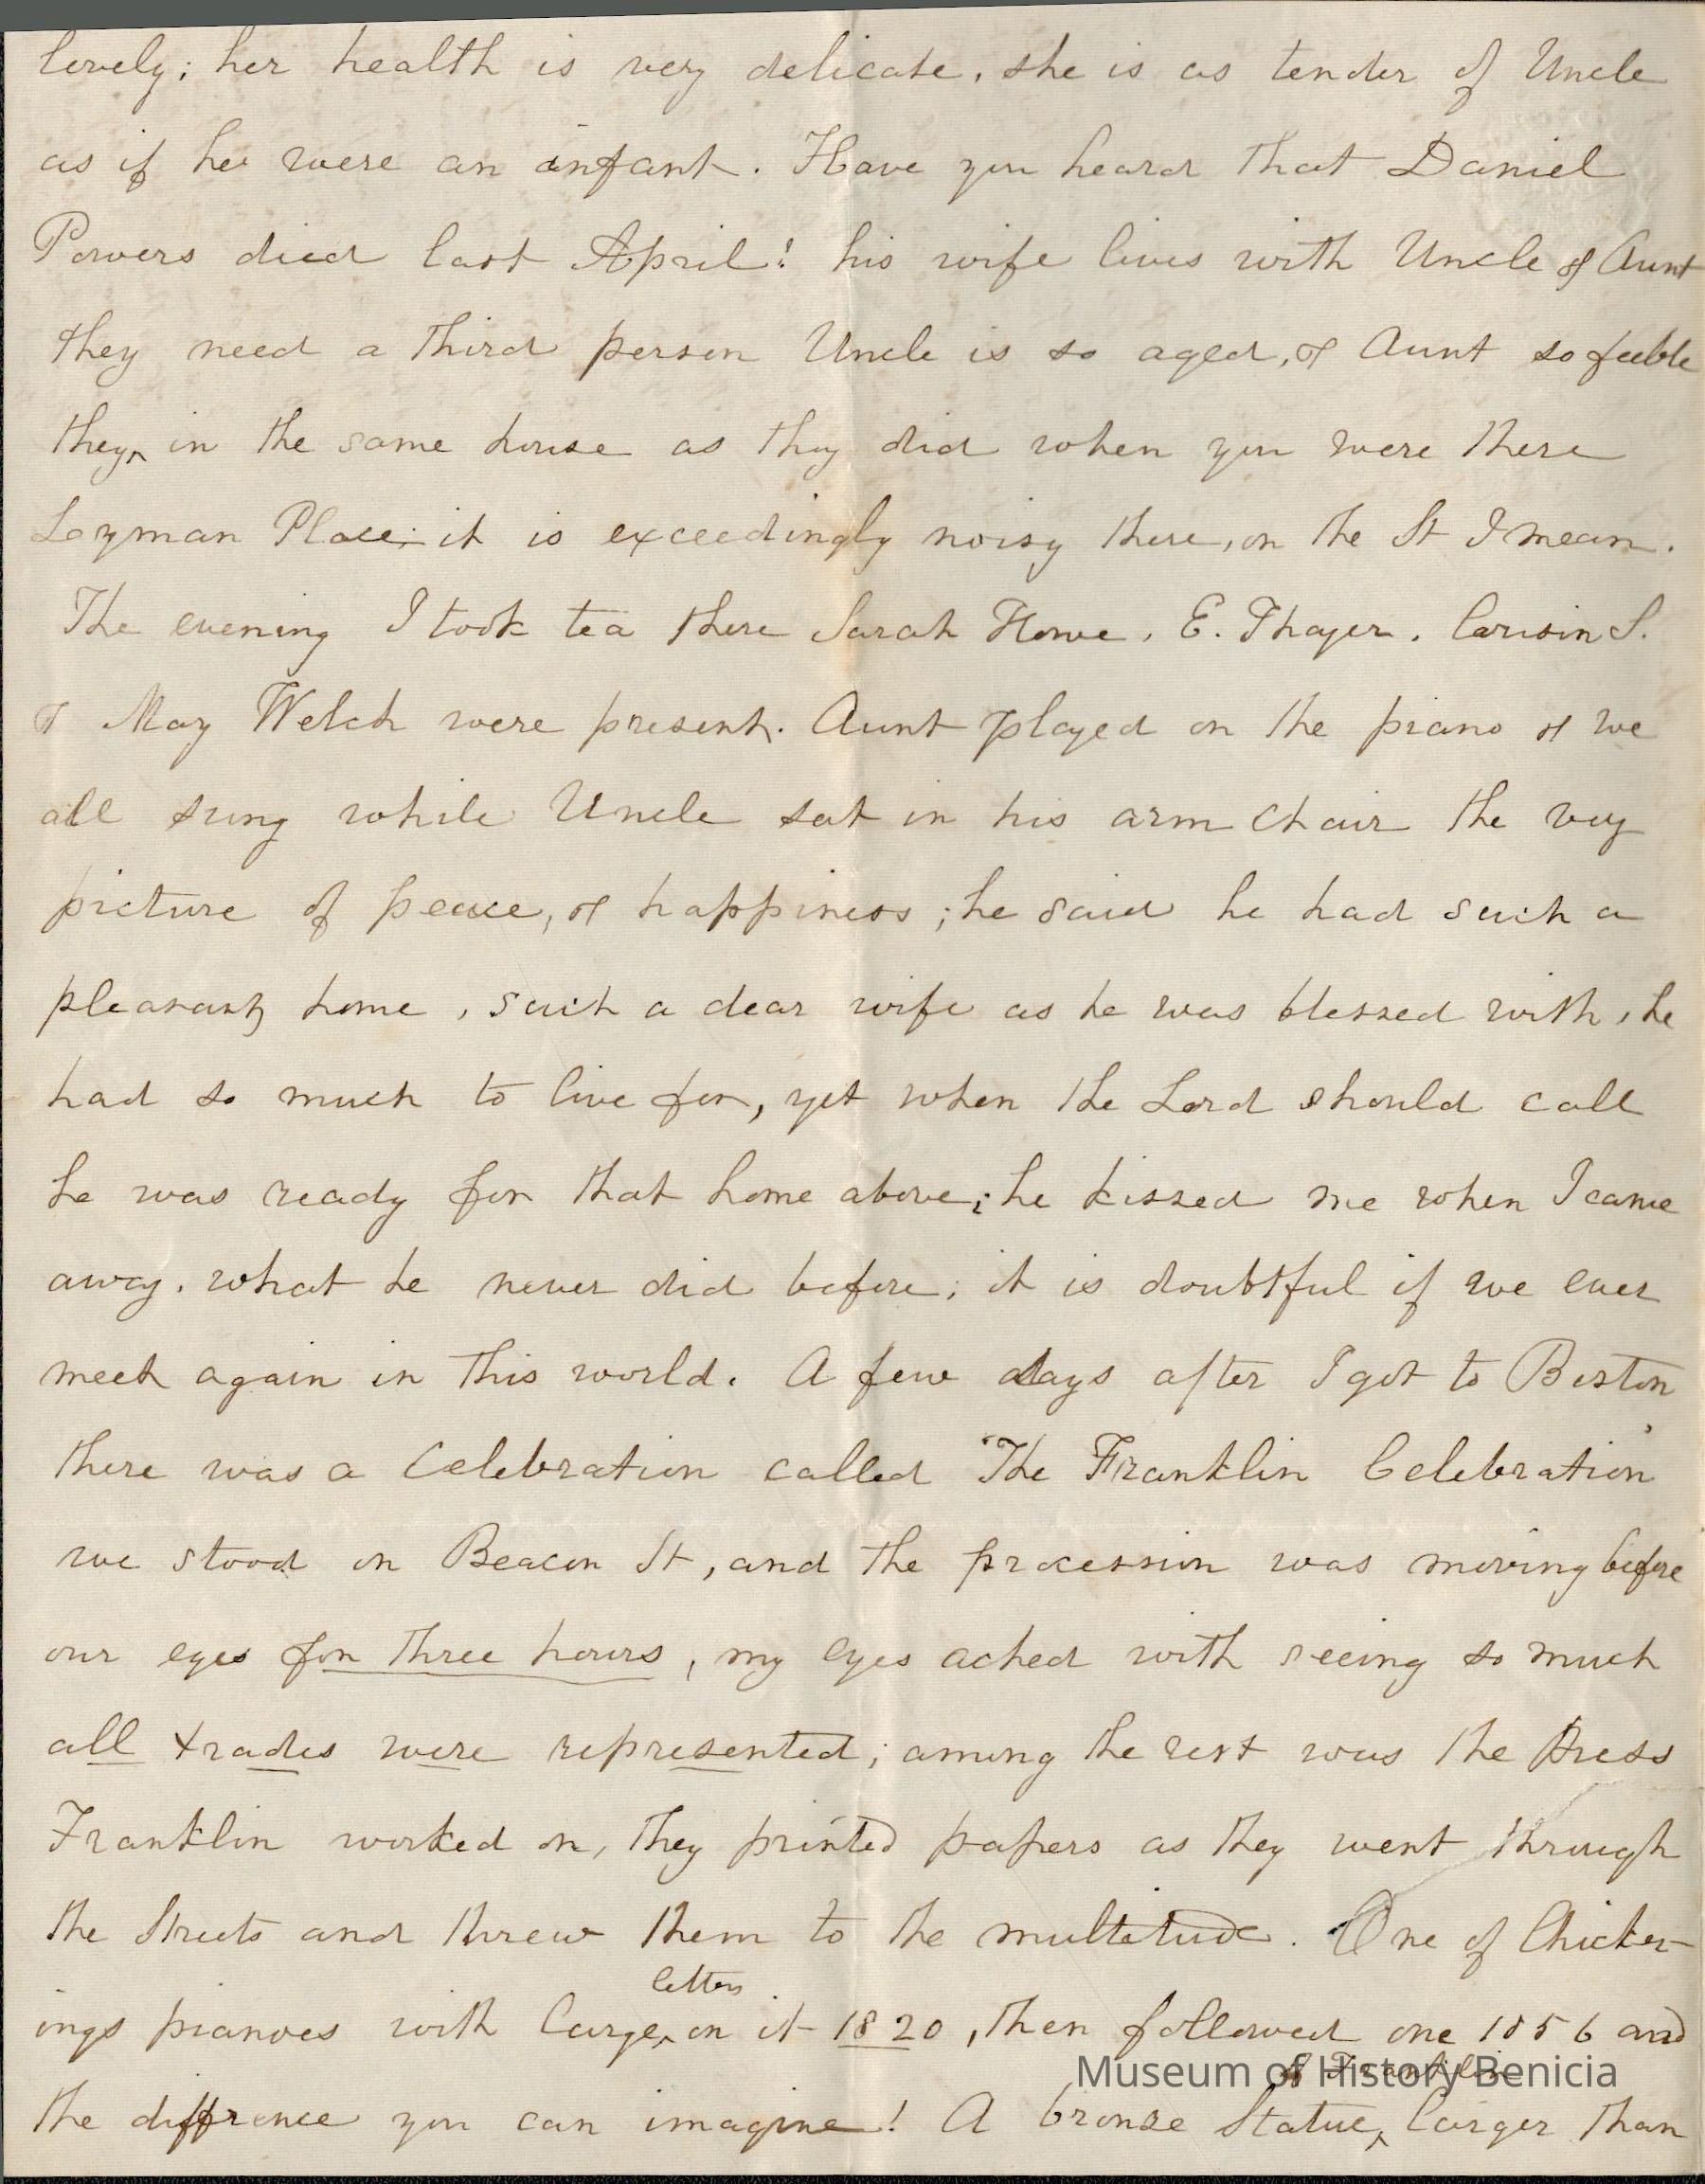 lovely; her health is very delicate, she is as tender of Uncle
as if he were an infant. Have you heard that Daniel
Powers died last April! his wife lives with Uncle & Aunt
they need a third person Uncle is so aged, & Aunt so feeble
they ‸ in the same house as they did when you were there
Layman Place; it is exceedingly noisy there, on the St I mean.
The evening I took tea there Sarah Howe, E. Thayer, S.
& May Welch were present. Aunt played on the piano & we
all sung while Uncle sat in his arm chair the very
picture of peace, & happiness; he said he had such a
pleasant home, such a dear wife as he was blessed with, he
had so much to live for, yet when the Lord should call
he was ready for that home above; he kissed me when I came
away, what he never did before; it is doubtful if we ever
meet again in this world. A few days after I got to Boston
there was a Celebration called "The Franklin Celebration"
we stood on Beacon St, and the procession was moving before
our eyes for three hours, my eyes ached with seeing so much
all trades were represented; among the rest was the Press
Franklin worked on, they printed papers as they went through
the Streets and threw them to the multetude. One of Chicker-
letters
ings pianoes with large ‸ on it 1820, then followed one 1856 and
of Franklin
the diffrence you can imagine! A bronze Statue ‸ larger than
Museum of History Benicia